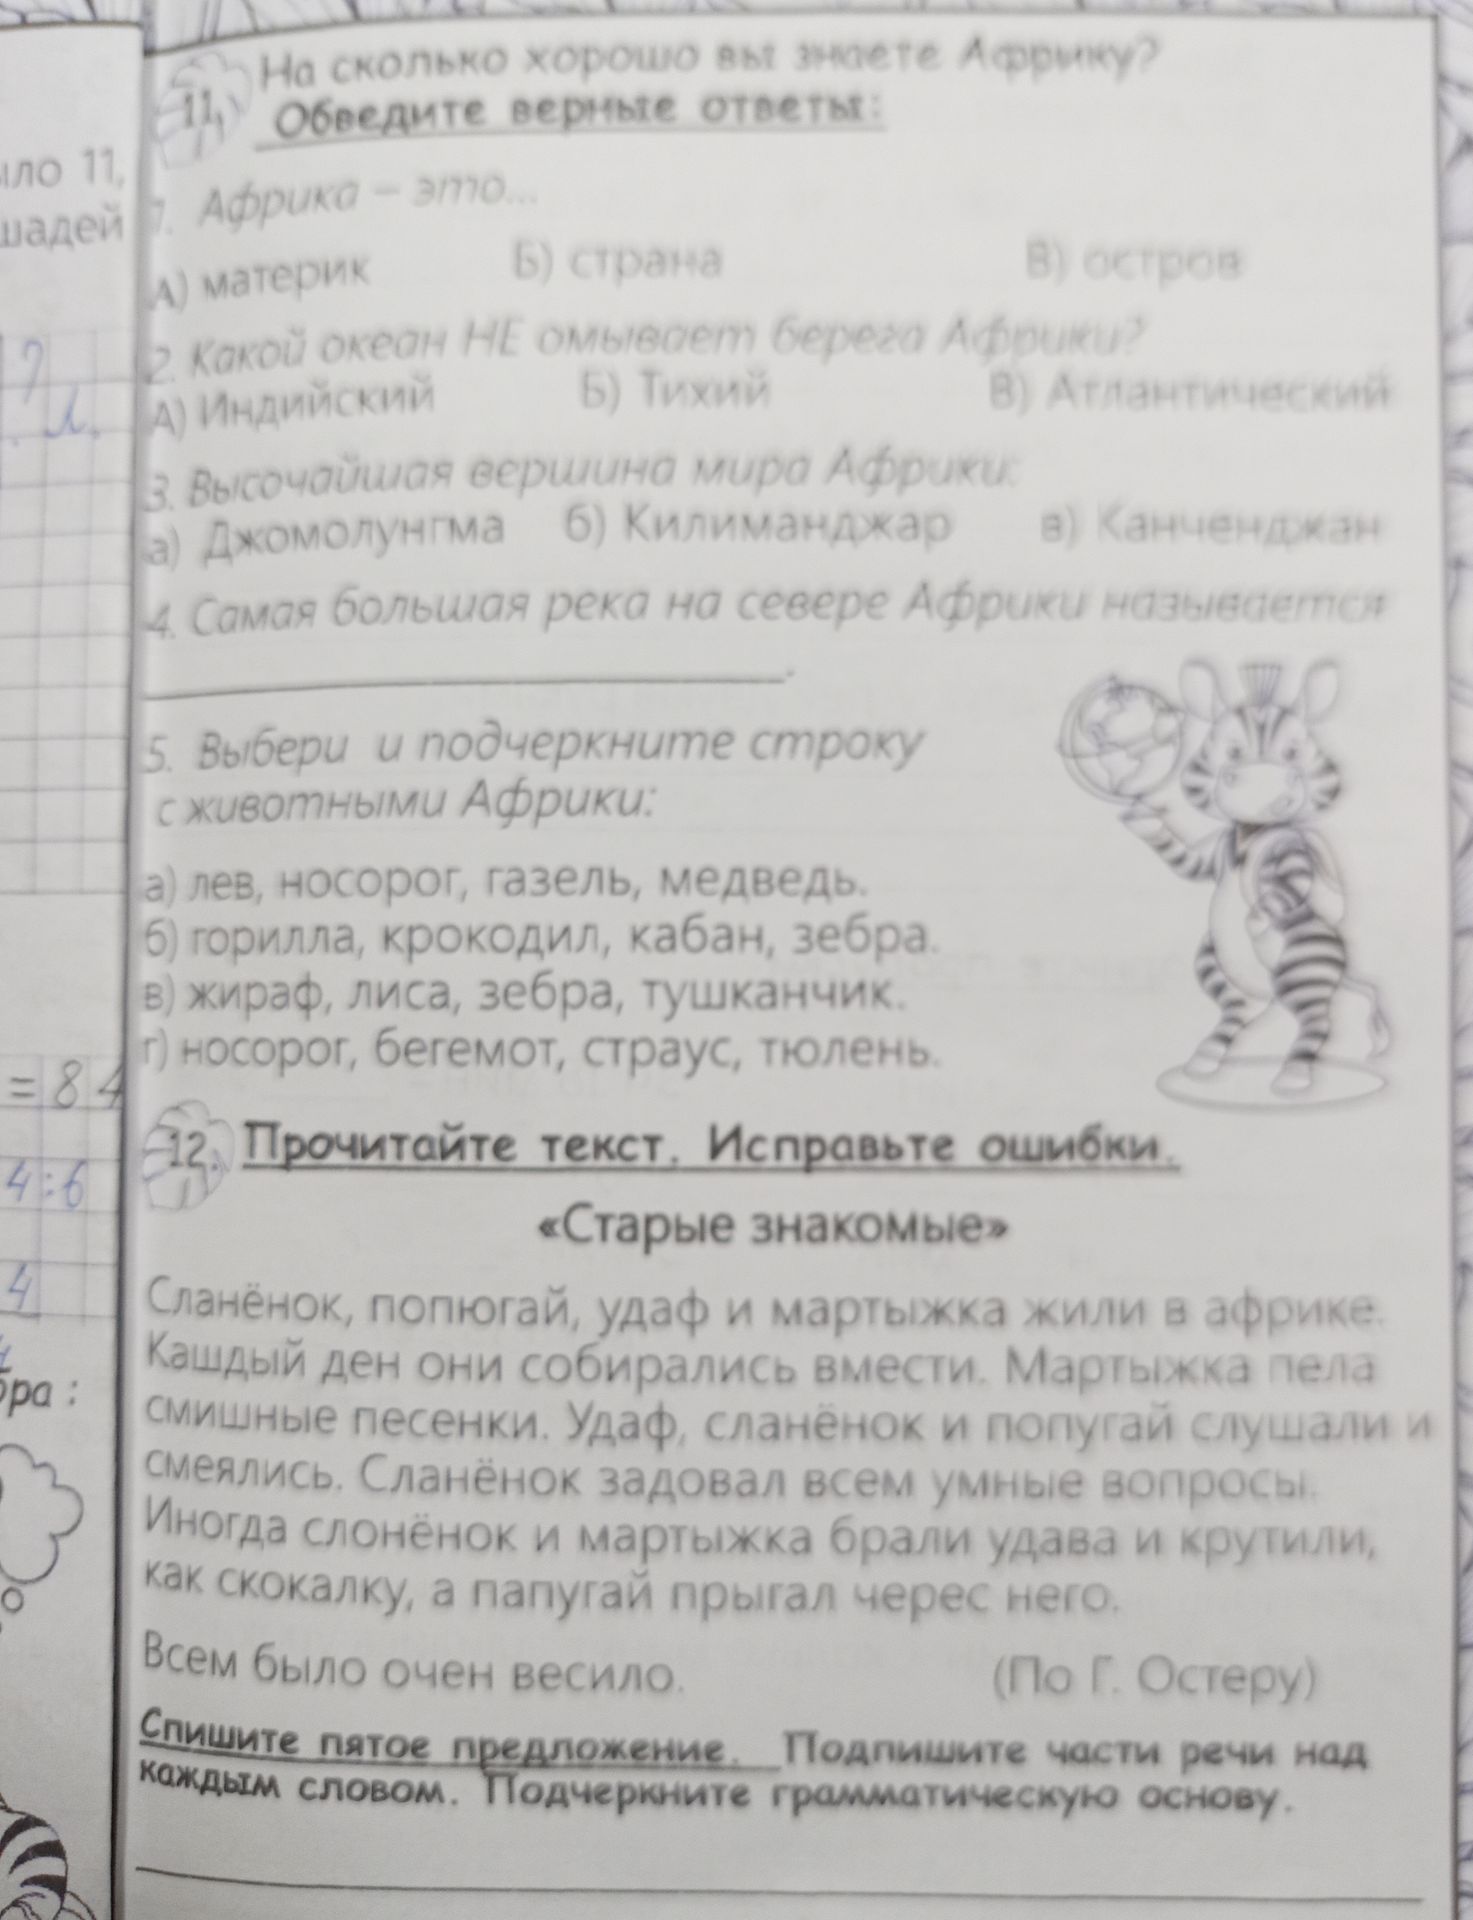 На сколько хорошо вы знаете Африку?
11. Обведите верные ответы:
1. Африка – это...
А) материк Б) страна В) остров
2. Какой океан НЕ омывает берега Африки?
А) Индийский Б) Тихий В) Атлантический
3. Высочайшая вершина мира Африки:
а) Джомолунгма б) Килиманджар в) Канченджан
4. Самая большая река на севере Африки называется
.
5. Выбери и подчеркните строку
с животными Африки:
а) лев, носорог, газель, медведь.
б) горилла, крокодил, кабан, зебра.
в) жираф, лиса, зебра, тушканчик.
г) носорог, бегемот, страус, тюлень.
12. Прочитайте текст. Исправьте ошибки.
«Старые знакомые»
Сланёнок, попюгай, удаф и мартыжка жили в африке.
Кашдый ден они собирались вмести. Мартыжка пела
смишные песенки. Удаф, сланёнок и попугай слушали и
смеялись. Сланёнок задовал всем умные вопросы.
Иногда слонёнок и мартыжка брали удава и крутили,
как скокалку, а папугай прыгал черес него.
Всем было очен весило. (По Г. Остеру)
Спишите пятое предложение. Подпишите части речи над
каждым словом. Подчеркните грамматическую основу.
11,
= 84
4:6
4